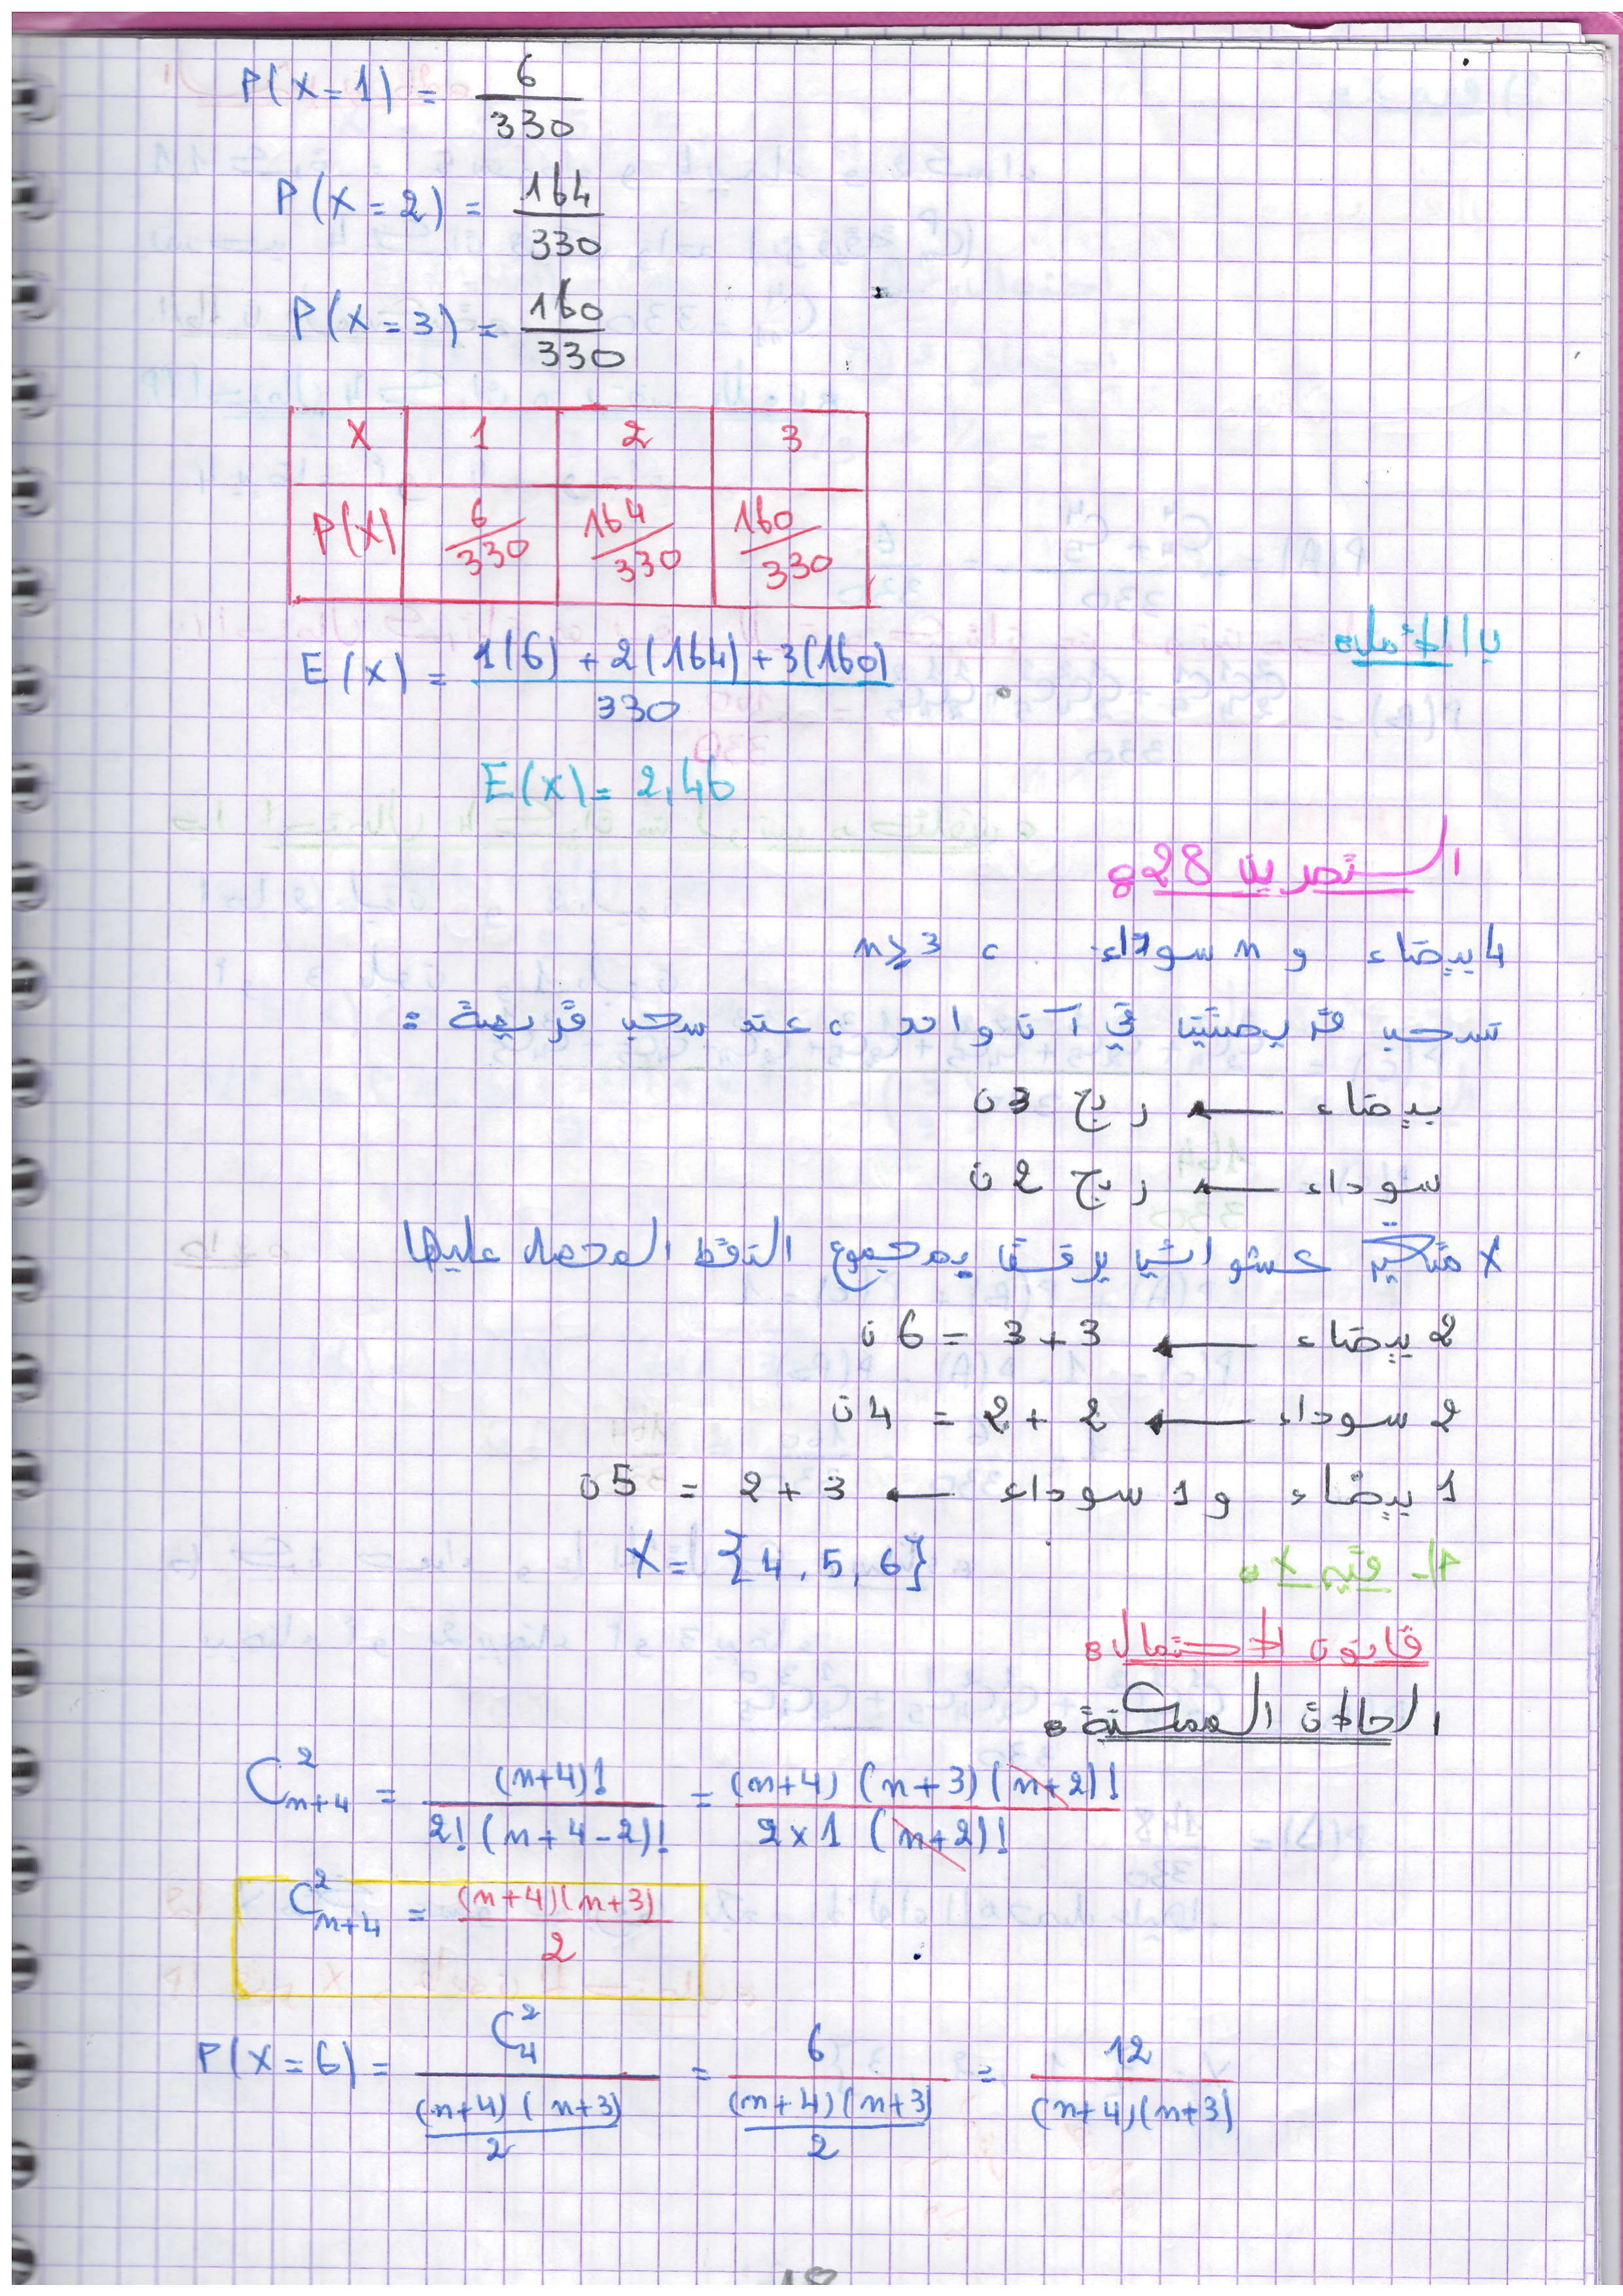 P(X=1) = 6/330
P(X=2) = 164/330
P(X=3) = 160/330
X 1 2 3
P(X) 6/330 164/330 160/330
E(X) = (1(6) + 2(164) + 3(160))/330
E(X) = 2,46
التمرين 28:
4 بيضاء و n سوداء ، n≥3
نسحب قريصتين في آن واحد ، عند سحب قريصة :
بيضاء ← ربح 3ن
سوداء ← ربح 2ن
X متغير عشوائي يرفق بمجموع النقط المحصل عليها
2 بيضاء ← 3+3 = 6ن
2 سوداء ← 2+2 = 4ن
1 بيضاء و 1 سوداء ← 3+2 = 5ن
1- قيم X: X = {4, 5, 6}
قانون الاحتمال:
الحالات الممكنة:
C²ₙ₊₄ = (n+4)!/(2!(n+4-2)!) = (n+4)(n+3)(n+2)!/(2×1(n+2)!)
C²ₙ₊₄ = (n+4)(n+3)/2
P(X=6) = C²₄/((n+4)(n+3)/2) = 6/((n+4)(n+3)/2) = 12/((n+4)(n+3))